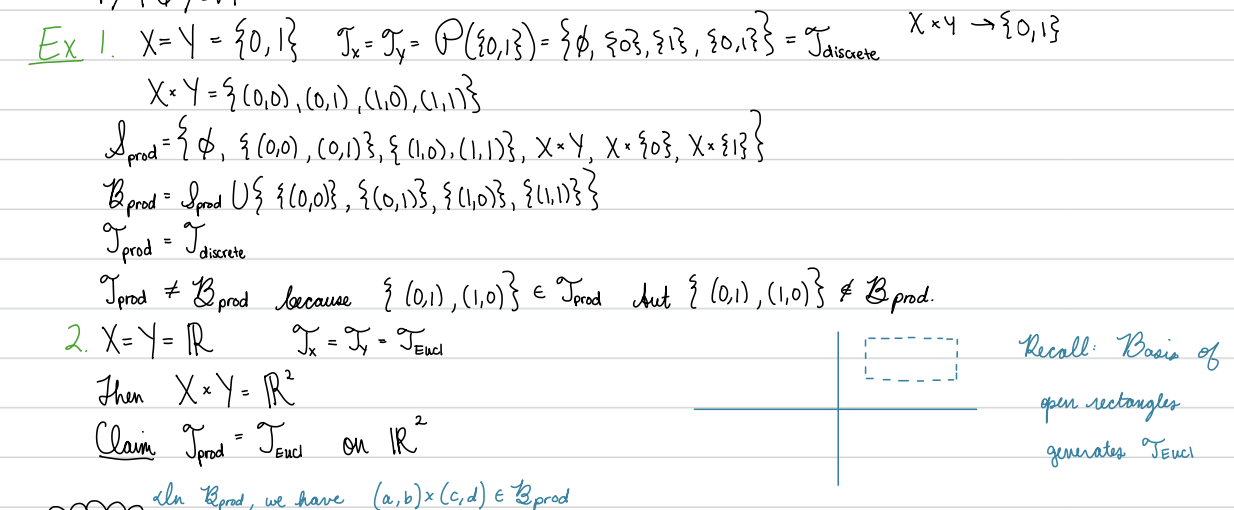 Ex 1. X=Y={0,1} 𝒯x = 𝒯y = 𝒫({0,1}) = {ϕ, {0}, {1}, {0,1}} = 𝒯discrete X×Y → {0,1}
X×Y = {(0,0), (0,1), (1,0), (1,1)}
𝒮prod = {ϕ, {(0,0), (0,1)}, {(1,0), (1,1)}, X×Y, X×{0}, X×{1}}
ℬprod = 𝒮prod ∪ { {(0,0)}, {(0,1)}, {(1,0)}, {(1,1)} }
𝒯prod = 𝒯discrete
𝒯prod ≠ ℬprod because {(0,1), (1,0)} ∈ 𝒯prod but {(0,1), (1,0)} ∉ ℬprod.
2. X=Y=ℝ 𝒯x = 𝒯y = 𝒯Eucl
Then X×Y = ℝ²
Claim 𝒯prod = 𝒯Eucl on ℝ²
Recall: Basis of
open rectangles
generates 𝒯Eucl
In ℬprod, we have (a,b)×(c,d) ∈ ℬprod